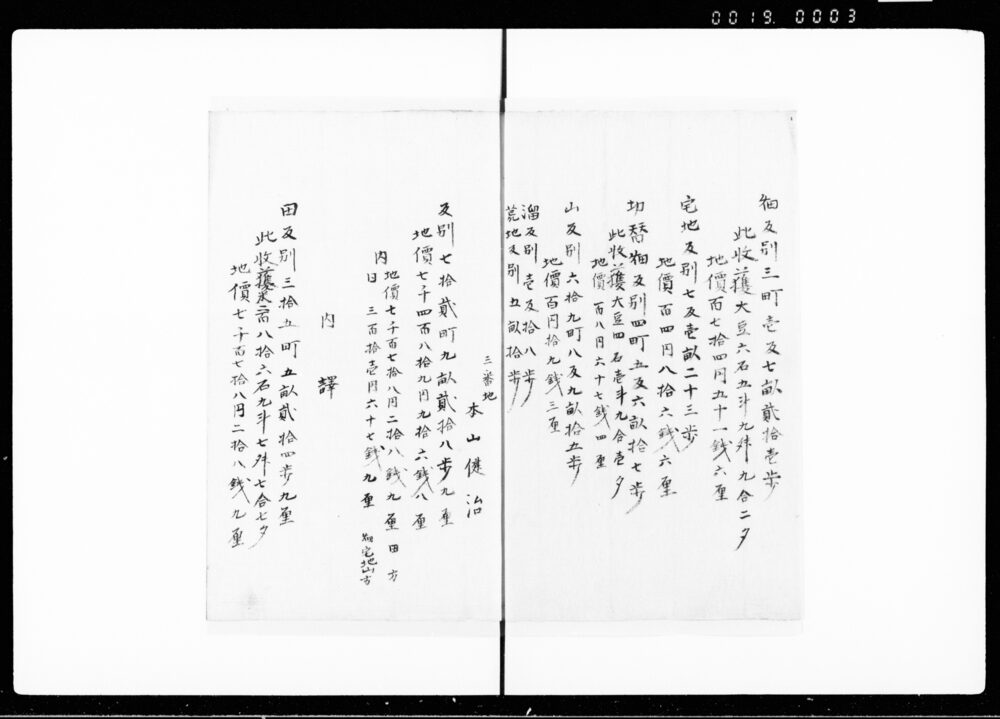 0019.0003
畑反別三町壱反七畝貳拾壱歩
此收獲大豆六石五斗九升九合二夕
地價百七拾四円五十一銭六厘
宅地反別七反壱畝二十三歩
地價百四円八拾六銭六厘
切替畑反別四町五反六畝拾七歩
此收獲大豆四石壱斗九合壱夕
地價百八円六十七銭四厘
山反別六拾九町八反九畝拾五歩
地價百円拾九銭三厘
溜反別壱反拾八歩
荒地反別五畝拾歩
三番地
本山健治
反別七拾貳町九畝貳拾八歩九厘
地價七千四百八拾九円九拾六銭八厘
内
地價七千百七拾八円二拾八銭九厘田方
日三百拾壱円六十七銭九厘畑宅地山方
内譯
田反別三拾五町五畝貳拾四歩九厘
此收獲米二百八拾六石九斗七升七合七夕
地價七千百七拾八円二拾八銭九厘